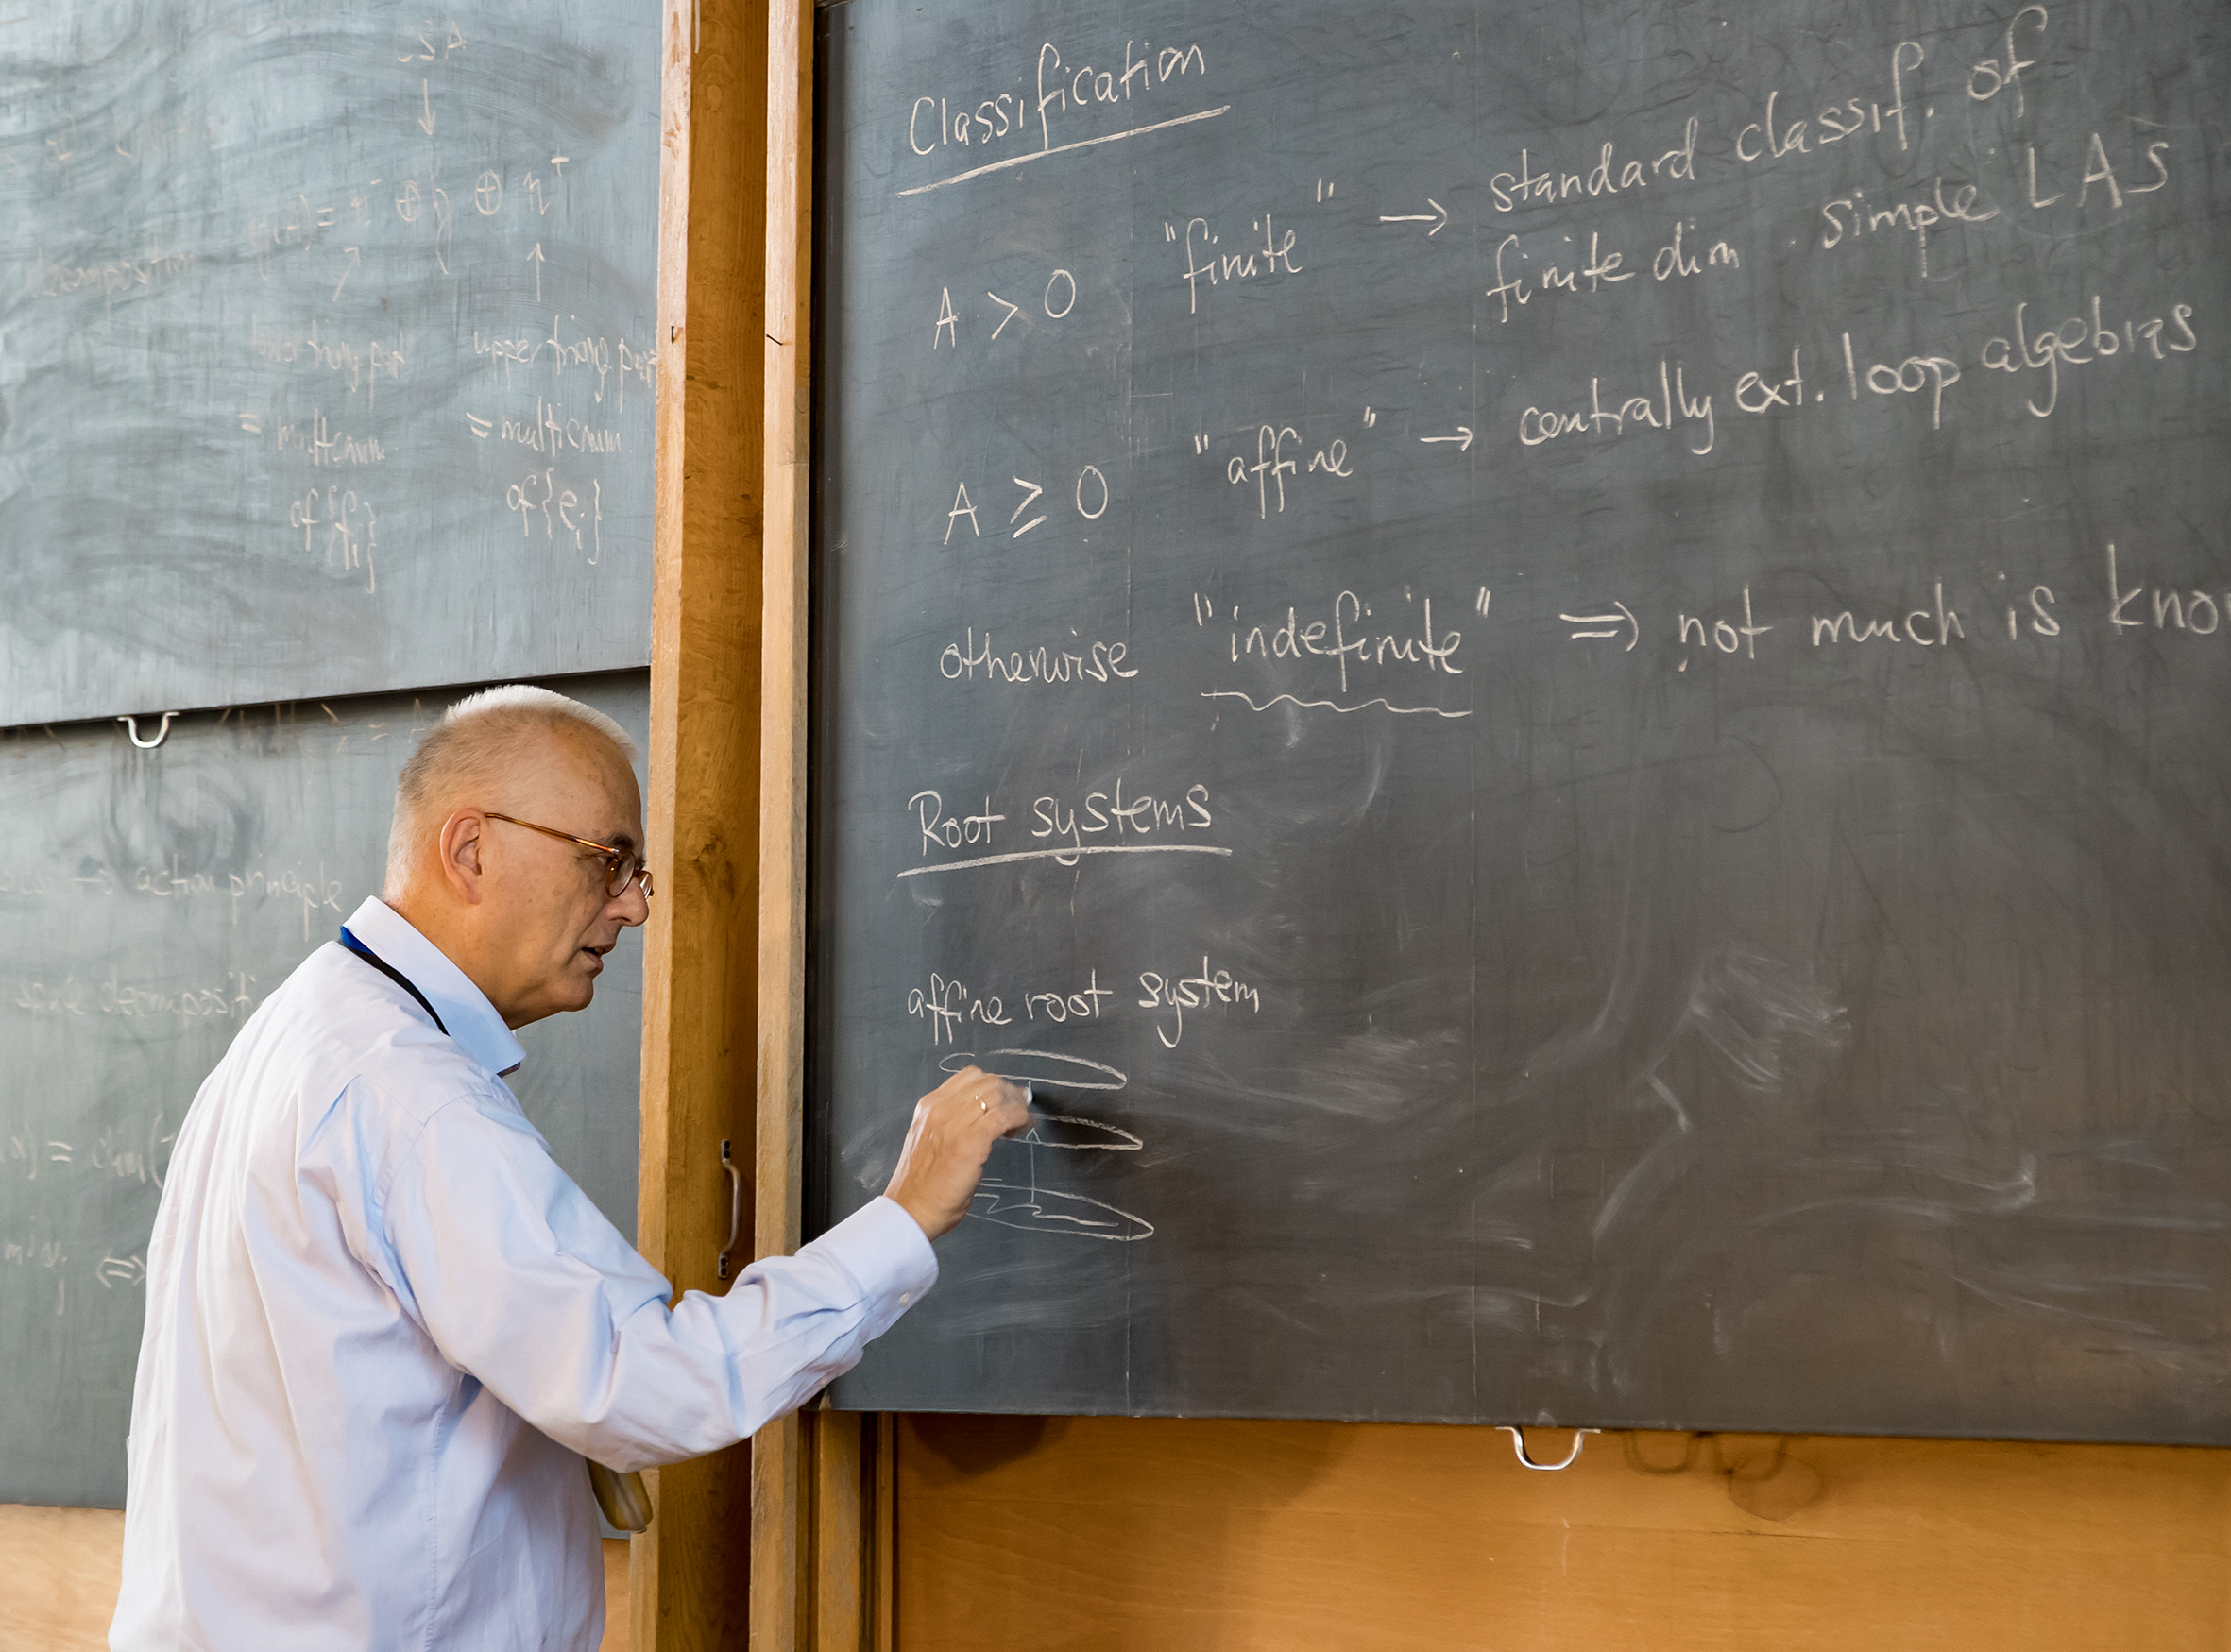 decomposition
= n⁻ ⊕ h ⊕ n⁺
upper triang. part
= multicomm = multicomm.
of {fᵢ} of {eᵢ}
→ action principle
) = dim(
⇔
Classification
A > 0 "finite" → standard classif. of
finite dim. simple LAs
A ≥ 0 "affine" → centrally ext. loop algebras
otherwise "indefinite" ⇒ not much is kno
Root systems
affine root system